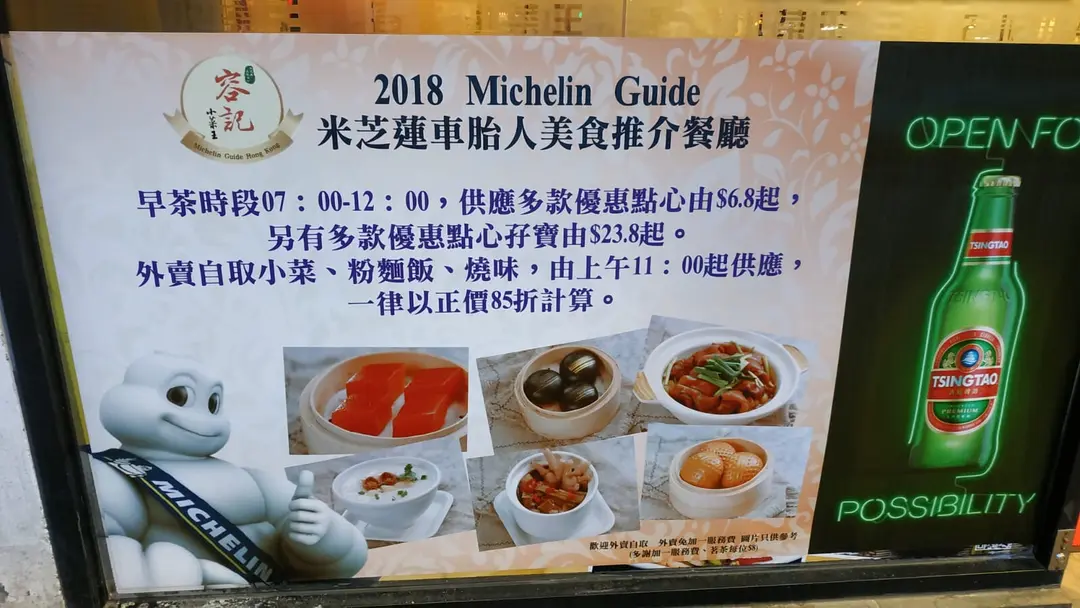 容記
小菜王
Michelin Guide Hong Kong
2018 Michelin Guide
米芝蓮車胎人美食推介餐廳
早茶時段07：00-12：00，供應多款優惠點心由$6.8起，
另有多款優惠點心孖寶由$23.8起。
外賣自取小菜、粉麵飯、燒味，由上午11：00起供應，
一律以正價85折計算。
MICHELIN
歡迎外賣自取 外賣免加一服務費 圖片只供參考
(多謝加一服務費、茗茶每位$8)
OPEN FO
TSINGTAO
TSINGTAO
PREMIUM
POSSIBILITY